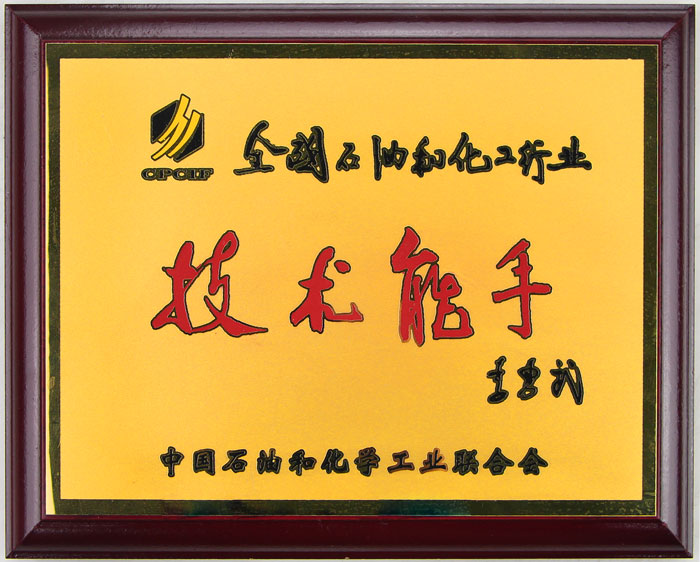 CPCIF
全国石油和化工行业
技术能手
李勇武
中国石油和化学工业联合会